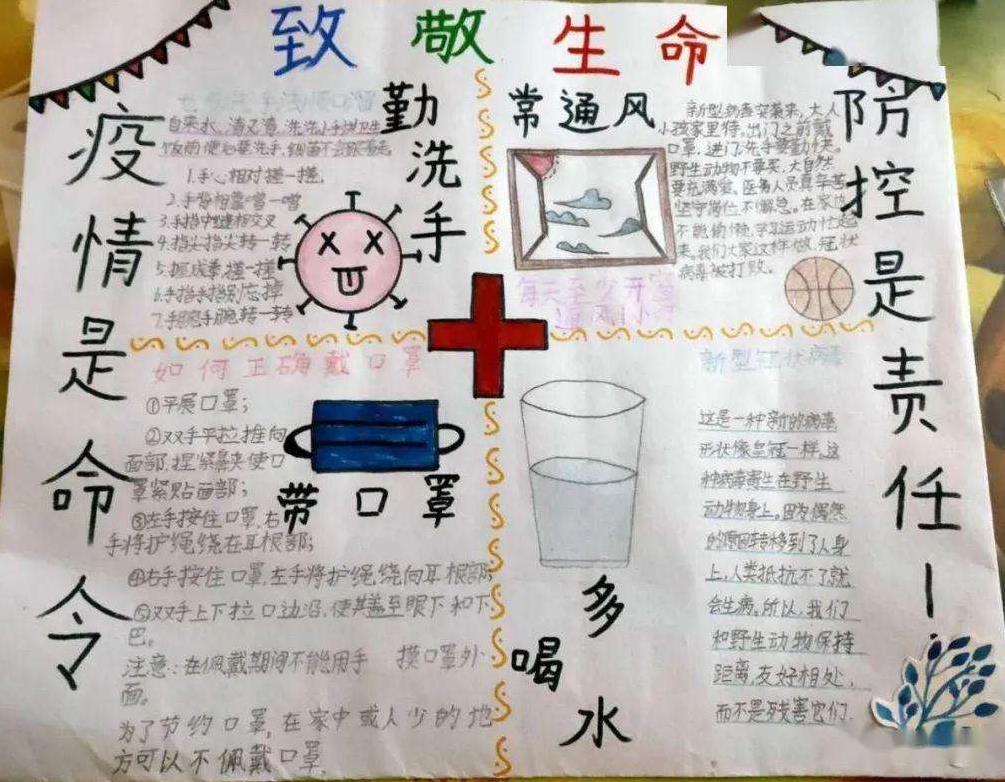 致敬生命
疫情是命令
防控是责任！
勤洗手
自来水，清又清，洗洗小手讲卫生
饭前便后要洗手，细菌不会跟着走
1.手心相对搓一搓，
2.手背相靠
3.手指中缝相交叉
4.指头指头转一转
5.握成拳搓一搓
6.手指手指别忘掉
7.手腕手腕转一转
常通风
新型病毒突袭来，大人
小孩家里待。出门之前戴
口罩，进门洗手要勤快。
野生动物不要买，大自然
要充满爱。医务人员真辛苦
坚守岗位不懈怠。在家
不能偷懒，学习运动
来。我们大家这样做，冠状
病毒被打败。
每天至少开窗
通风
如何正确戴口罩
①平展口罩；
②双手平拉推向
面部，捏紧鼻夹使口
罩紧贴面部；
③左手按住口罩，右
手将护绳绕在耳根部；
④右手按住口罩，左手将护绳绕向耳根部
⑤双手上下拉口边沿，使其盖至眼下和下
巴。
注意：在佩戴期间不能用手 摸口罩外
面。
为了节约口罩，在家中或人少的地
方可以不佩戴口罩。
带口罩
多喝水
新型冠状病毒
这是一种新的病毒
形状像皇冠一样。这
种病毒寄生在野生
动物身上。因为偶然
的原因转移到了人身
上，人类抵抗不了就
会生病。所以，我们
和野生动物保持
距离，友好相处，
而不是残害它们.